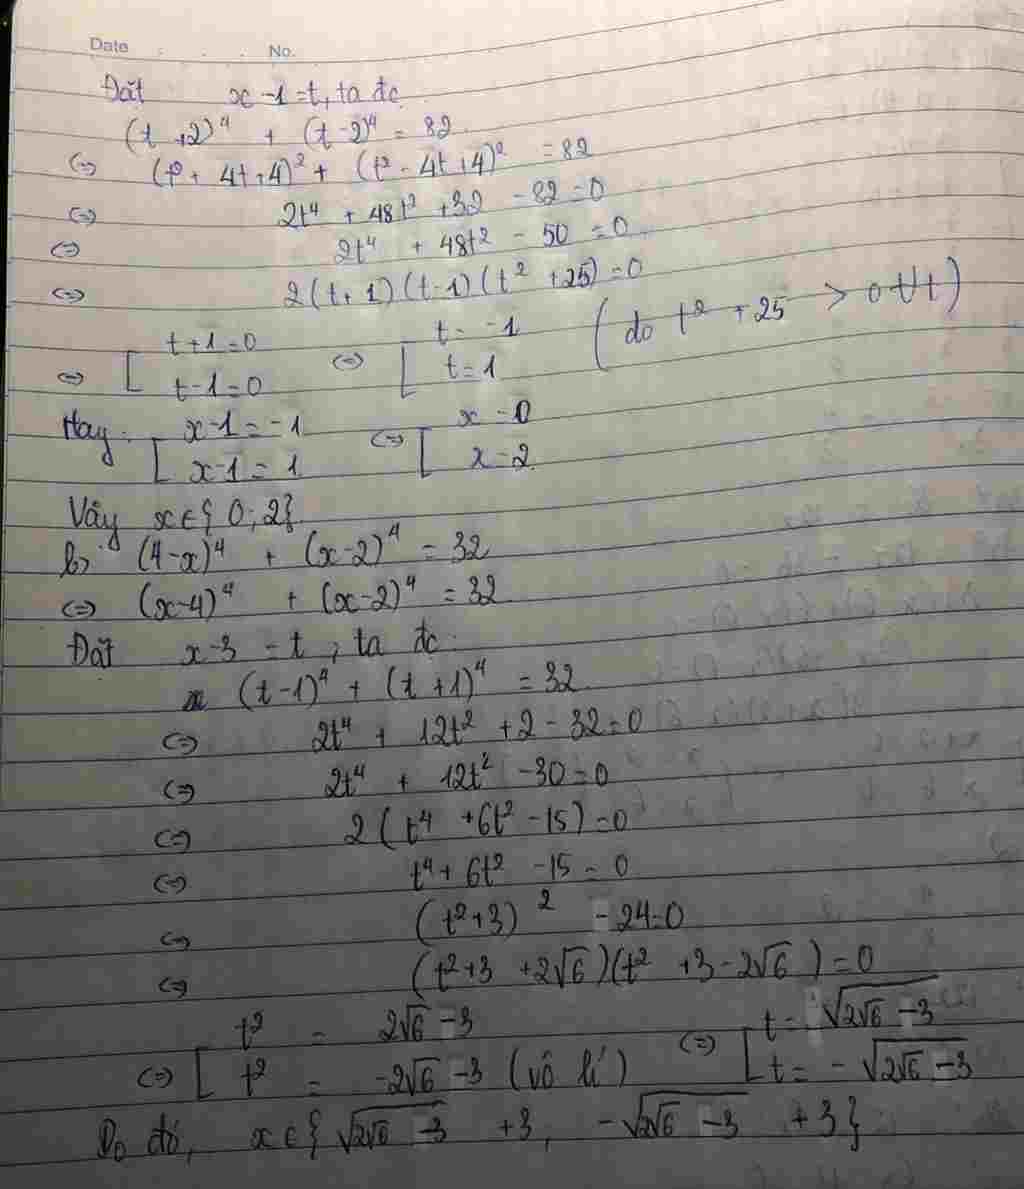 Date No.
Đặt x-1=t, ta đc
(t+2)⁴ + (t-2)⁴ = 82
(=) (t²+ 4t+4)² + (t² - 4t+4)² = 82
(=) 2t⁴ + 48t² +32 - 82=0
(=) 2t⁴ + 48t² - 50 = 0
(=) 2(t+1)(t-1)(t² +25)=0
(=) [ t+1=0 (=) [ t= -1 (do t² +25 > 0 ∀t)
t-1=0 t=1
Hay [ x-1=-1 (=) [ x=0
x-1=1 x=2
Vậy x∈{0;2}
b, (4-x)⁴ + (x-2)⁴ = 32
(=) (x-4)⁴ + (x-2)⁴ = 32
Đặt x-3 = t, ta đc
(t-1)⁴ + (t+1)⁴ = 32
(=) 2t⁴ + 12t² +2 - 32=0
(=) 2t⁴ + 12t² -30=0
(=) 2(t⁴ +6t² -15)=0
(=) t⁴+ 6t² -15=0
(=) (t²+3)² -24=0
(=) (t²+3 +2√6)(t² +3-2√6)=0
(=) [ t² = 2√6 -3 (=) [ t= √(2√6 -3)
t² = -2√6 -3 (vô lí) t= -√(2√6 -3)
Do đó, x∈{√(2√6 -3) +3, -√(2√6 -3) +3}